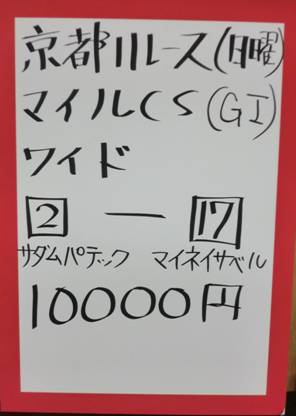 京都11レース(日曜)
マイルCS(GI)
ワイド
2 ー 17
サダムパテック マイネイサベル
10000円